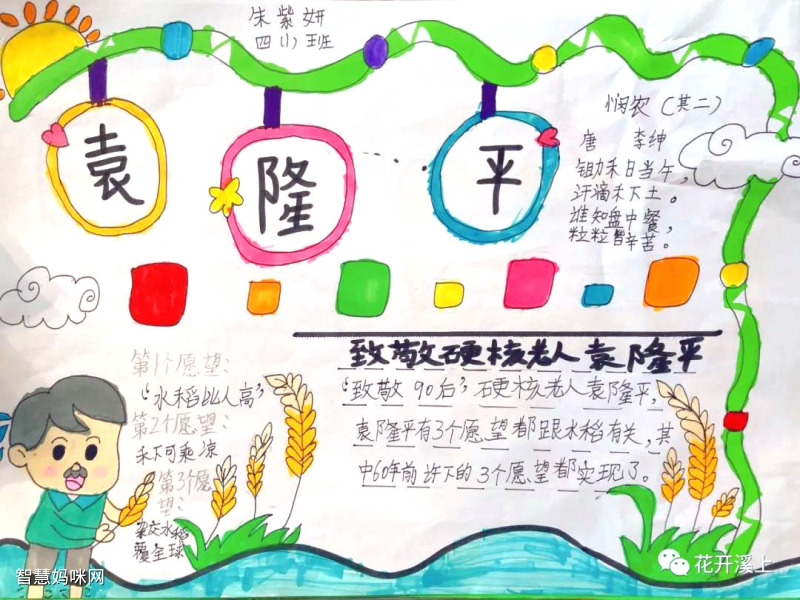 朱紫妍
四(1)班
袁隆平
悯农(其二)
唐 李绅
锄禾日当午,
汗滴禾下土。
谁知盘中餐,
粒粒皆辛苦。
致敬硬核老人袁隆平
“致敬90后”硬核老人袁隆平,
袁隆平有3个愿望都跟水稻有关,其
中60年前许下的3个愿望都实现了。
第1个愿望:
“水稻比人高”
第2个愿望:
禾下可乘凉
第3个愿
望:
杂交水稻
覆全球
智慧妈咪网
花开溪上